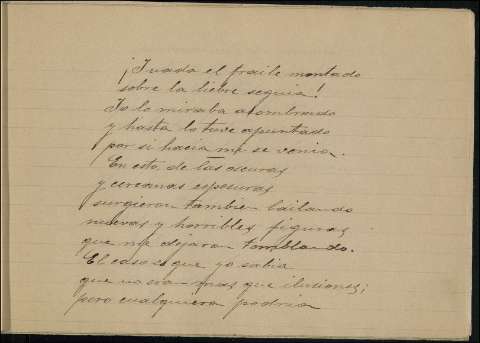 ¡Y nada el fraile montado
sobre la liebre seguia!
Yo lo miraba asombrado
y hasta lo tuve apuntado
por si hacia mi se venia.
En esto, de las oscuras
y cercanas espesuras
surgieron tambien bailando
nuevas y horribles figuras
que me dejaron temblando.
El caso es que yo sabia
que no eran mas que ilusiones;
pero cualquiera podria